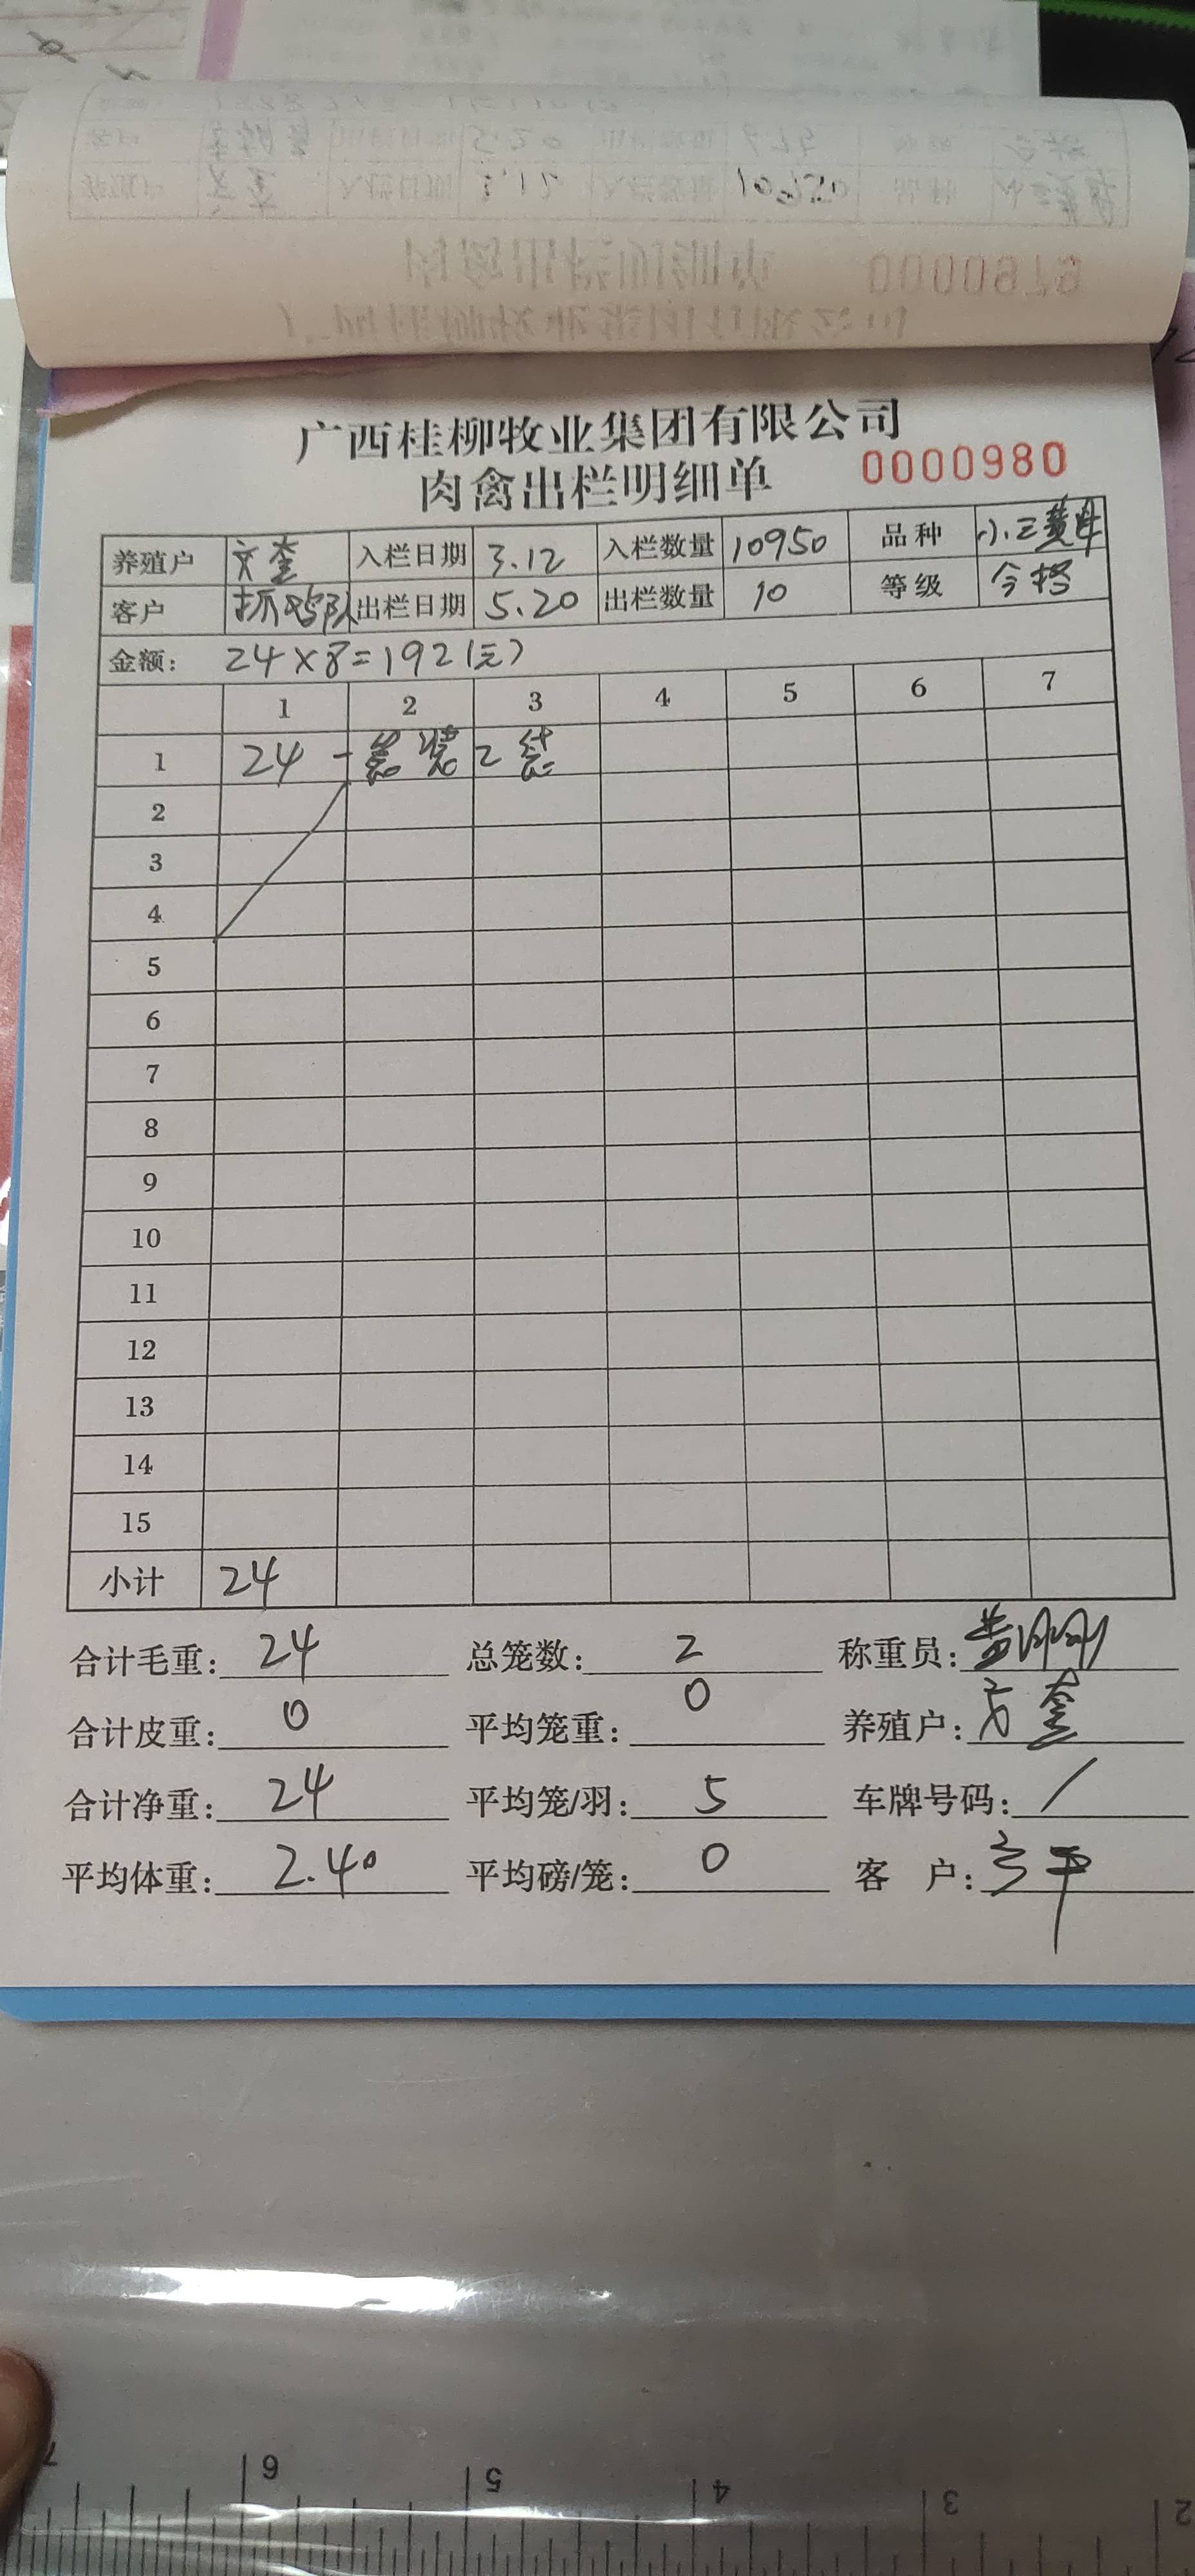 广西桂柳牧业集团有限公司
肉禽出栏明细单 0000980
养殖户 入栏日期 3.12 入栏数量 10950 品种 小三黄
客户 抓鸭队 出栏日期 5.20 出栏数量 10 等级
金额: 24×8=192(元)
1 2 3 4 5 6 7
1 24 - 袋装2袋
2
3
4
5
6
7
8
9
10
11
12
13
14
15
小计 24
合计毛重: 24 总笼数: 2 称重员:
合计皮重: 0 平均笼重: 0 养殖户:
合计净重: 24 平均笼/羽: 5 车牌号码: /
平均体重: 2.40 平均磅/笼: 0 客 户:
7 6 5 4 3 2